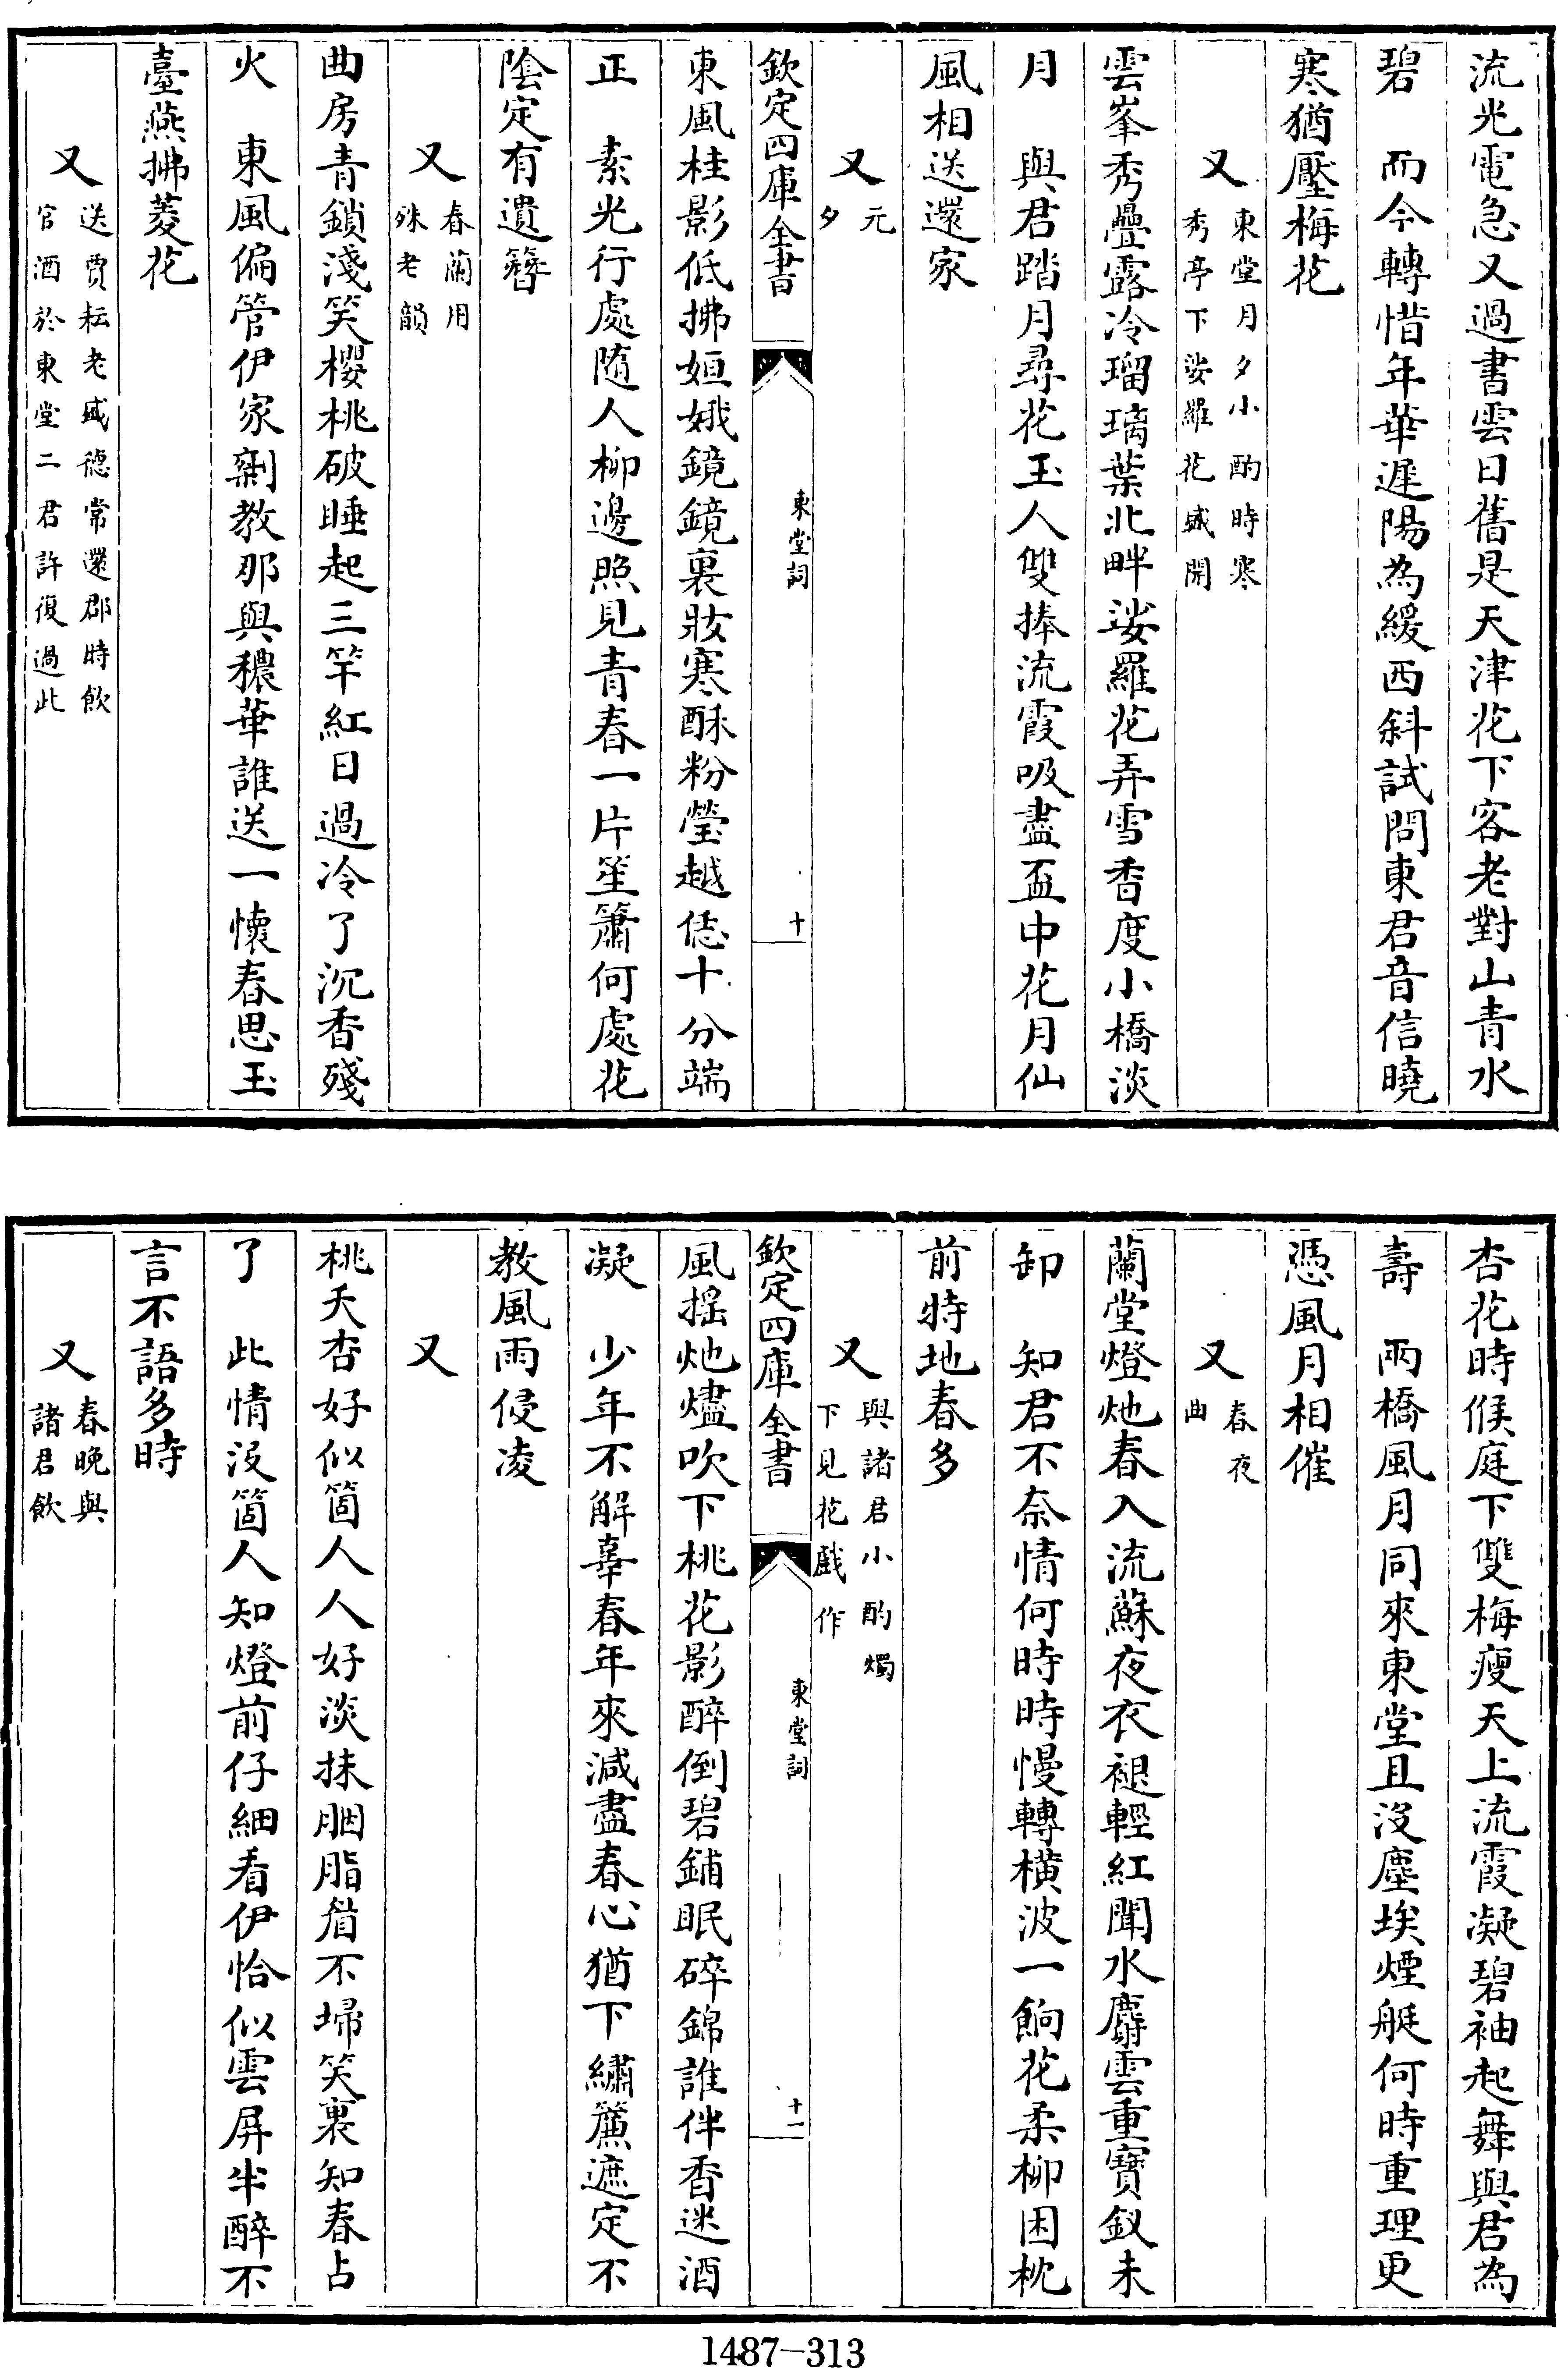 流光電急又過書雲日舊是天津花下客老對山青水
碧　而今轉惜年華遲陽為緩西斜試問東君音信曉
寒猶壓梅花
又 東堂月夕小酌時寒
秀亭下娑羅花盛開
雲峯秀疊露冷瑠璃葉北畔娑羅花弄雪香度小橋淡
月　與君踏月尋花玉人雙捧流霞吸盡盃中花月仙
風相送還家
又 元
夕
欽定四庫全書　東堂詞　十
東風桂影低拂姮娥鏡鏡裏妝寒酥粉瑩越恁十分端
正　素光行處隨人柳邊照見青春一片笙簫何處花
陰定有遺簪
又 春蘭用
殊老韻
曲房青鎖淺笑櫻桃破睡起三竿紅日過冷了沉香殘
火　東風偏管伊家剩教那與穠華誰送一懷春思玉
臺燕拂菱花
又 送賈耘老盛德常還郡時飲
官酒於東堂二君許復過此
杏花時候庭下雙梅瘦天上流霞凝碧袖起舞與君為
壽　兩橋風月同來東堂且沒塵埃煙艇何時重理更
憑風月相催
又 春夜
曲
蘭堂燈灺春入流蘇夜衣褪輕紅聞水麝雲重寶釵未
卸　知君不奈情何時時慢轉橫波一餉花柔柳困枕
前特地春多
又 與諸君小酌燭
下見花戲作
欽定四庫全書　東堂詞　十一
風搖灺燼吹下桃花影醉倒碧鋪眠碎錦誰伴香迷酒
凝　少年不解辜春年來減盡春心猶下繡簾遮定不
教風雨侵凌
又
桃夭杏好似箇人人好淡抹胭脂眉不埽笑裏知春占
了　此情沒箇人知燈前仔細看伊恰似雲屏半醉不
言不語多時
又 春晚與
諸君飲
1487-313